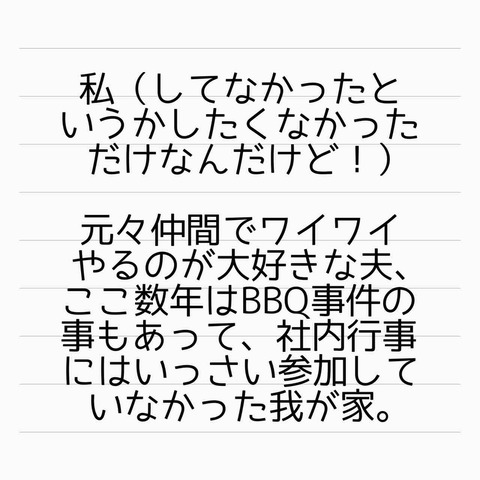 私（してなかったと
いうかしたくなかった
だけなんだけど！）
元々仲間でワイワイ
やるのが大好きな夫、
ここ数年はBBQ事件の
事もあって、社内行事
にはいっさい参加して
いなかった我が家。